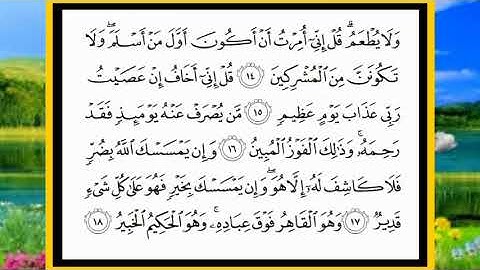 وَلَا يُطۡعَمُۗ قُلۡ إِنِّيٓ أُمِرۡتُ أَنۡ أَكُونَ أَوَّلَ مَنۡ أَسۡلَمَۖ وَلَا
تَكُونَنَّ مِنَ ٱلۡمُشۡرِكِينَ ١٤ قُلۡ إِنِّيٓ أَخَافُ إِنۡ عَصَيۡتُ
رَبِّي عَذَابَ يَوۡمٍ عَظِيمٖ ١٥ مَّن يُصۡرَفۡ عَنۡهُ يَوۡمَئِذٖ فَقَدۡ
رَحِمَهُۥۚ وَذَٰلِكَ ٱلۡفَوۡزُ ٱلۡمُبِينُ ١٦ وَإِن يَمۡسَسۡكَ ٱللَّهُ بِضُرّٖ
فَلَا كَاشِفَ لَهُۥٓ إِلَّا هُوَۖ وَإِن يَمۡسَسۡكَ بِخَيۡرٖ فَهُوَ عَلَىٰ كُلِّ شَيۡءٖ
قَدِيرٞ ١٧ وَهُوَ ٱلۡقَاهِرُ فَوۡقَ عِبَادِهِۦۚ وَهُوَ ٱلۡحَكِيمُ ٱلۡخَبِيرُ ١٨